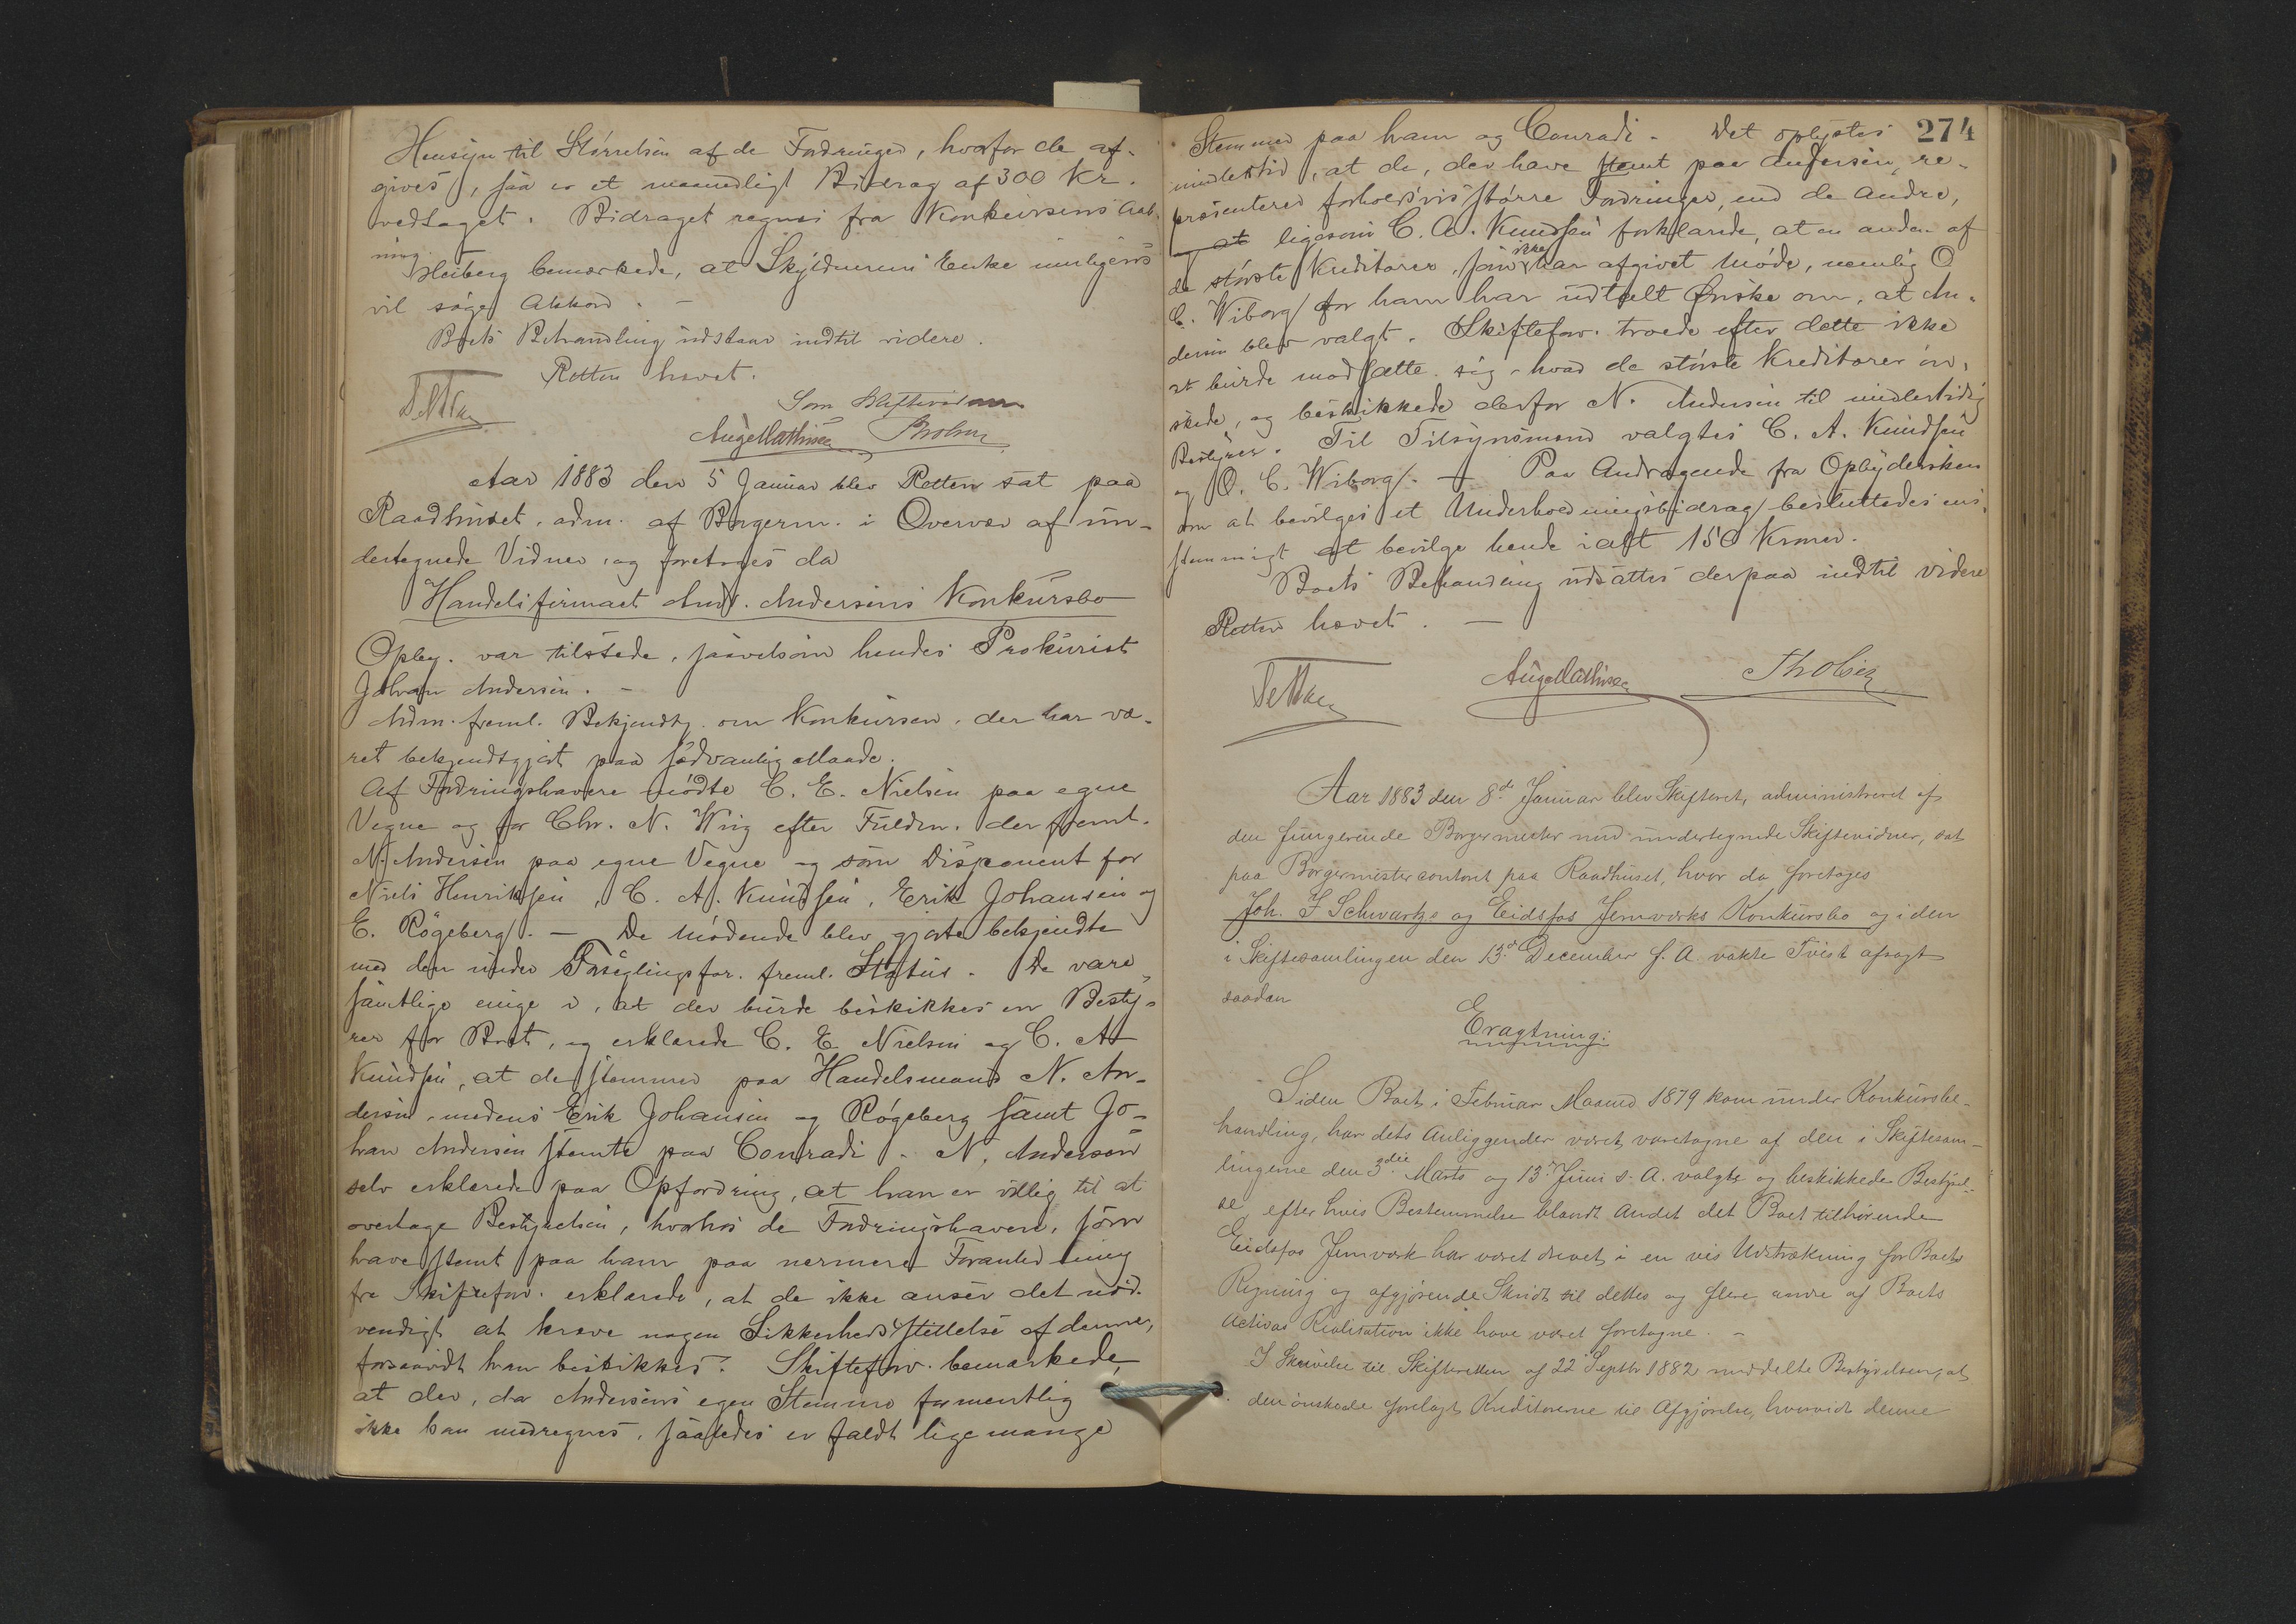 Hensyn til Størrelsen af de Fordringer, hvorfor de af-
gives, saa er et maanedligt Bidrag af 300 Kr.
vedtaget. Bidraget regnes fra Konkursens Aab-
ning.
Heiberg bemærkede, at Skyldnerens Enke muligens
vil søge Akkord. —
Boets Behandling udstaar indtil videre.
Retten hævet.
Som Skiftevidner
Aug Mathisen Th Olsen
Aar 1883 den 5 Januar blev Retten sat paa
Raadhuset, adm. af Borgerm. i Overvær af un-
dertegnede Vidner, og foretoges da
Handelsfirmaet And. Andersens Konkursbo
Opby. var tilstede, saavelsom hendes Prokurist
Johan Andersen. —
Adm. freml. Bekjendtg. om Konkursen, der har væ-
ret bekjendtgjort paa sædvanlig Maade.
Af Fordringshavere mødte C. E. Nielsen paa egne
Vegne og for Chr. N. Wiig efter Fuldm. der freml.
N. Andersen paa egne Vegne og som Disponent for
Niels Henriksen, C. A. Knudsen, Erik Johansen og
E. Røgeberg. — De Mødende blev gjorte bekjendte
med den under Forseglingsfor. freml. Status. De vare
samtlige enige i, at der burde beskikkes en Besty-
rer for Boet, og erklærede C. E. Nielsen og C. A.
Knudsen, at de stemmer paa Handelsmand N. An-
dersen, medens Erik Johansen og Røgeberg samt Jo-
han Andersen stemte paa Conradi. N. Andersen
selv erklærede paa Opfordring, at han er villig til at
overtage Bestyrelsen, hvorhos de Fordringshavere, som
have stemt paa ham paa nærmere Foranledning
fra Skifteforv. erklærede, at de ikke anser det nød-
vendigt at kræve nogen Sikkerhedsstillelse af denne,
forsaavidt han beskikkes. Skifteforv. bemærkede,
at der, da Andersens egen Stemme formentlig
ikke kan medregnes, saaledes er faldt lige mange
274
Stemmer paa ham og Conradi. Det oplystes
imidlertid, at de, der have stemt paa Andersen, re-
præsenterer forholdsvis større Fordringer, end de Andre,
at ligesom C. A. Knudsen forklarede, at en anden af
de største Kreditorer, som ikke har afgivet Møde, nemlig O
C. Wiborg for ham har udtalt Ønske om, at An-
dersen blev valgt. Skifteforv. troede efter dette ikke
at burde modsætte sig, hvad de største Kreditorer øn-
skede, og beskikkede derfor N. Andersen til midlertidig
Bestyrer. Til Tilsynsmænd valgtes C. A. Knudsen
og O. C. Wiborg. — Paa Andragende fra Opbydersken
om at bevilges et Underholdningsbidrag besluttedes een-
stemmigt at bevilge hende ialt 150 Kroner.
Boets Behandling udsattes derpaa indtil videre
Retten hævet. —
Aug Mathisen Th Olsen
Aar 1883 den 8de Januar blev Skifteret, administreret af
den fungerende Borgermester med undertegnede Skiftevidner, sat
paa Borgermestercontoret paa Raadhuset, hvor da foretoges
Joh. F Schwartz's og Eidsfos Jernværks Konkursbo og i den
i Skiftesamlingen den 13de December f. A. vakte Tvist afsagt
saadan
Eragtning:
Siden Boet i Februar Maaned 1879 kom under Konkursbe-
handling, har dets Anliggender været varetagne af den i Skiftesam-
lingerne den 3die Marts og 13de Juni s. A. valgte og beskikkede Bestyrel-
se, efter hvis Bestemmelse blandt Andet det Boet tilhørende
Eidsfos Jernværk har været drevet i en vis Udstrækning for Boets
Regning og afgjørende Skridt til dettes og flere andre af Boets
Activas Realisation ikke have været foretagne. —
I Skrivelse til Skifteretten af 22 Septbr 1882 meddelte Bestyrelsen, at
den ønskede forelagt Kreditorerne til Afgjørelse, hvorvidt denne